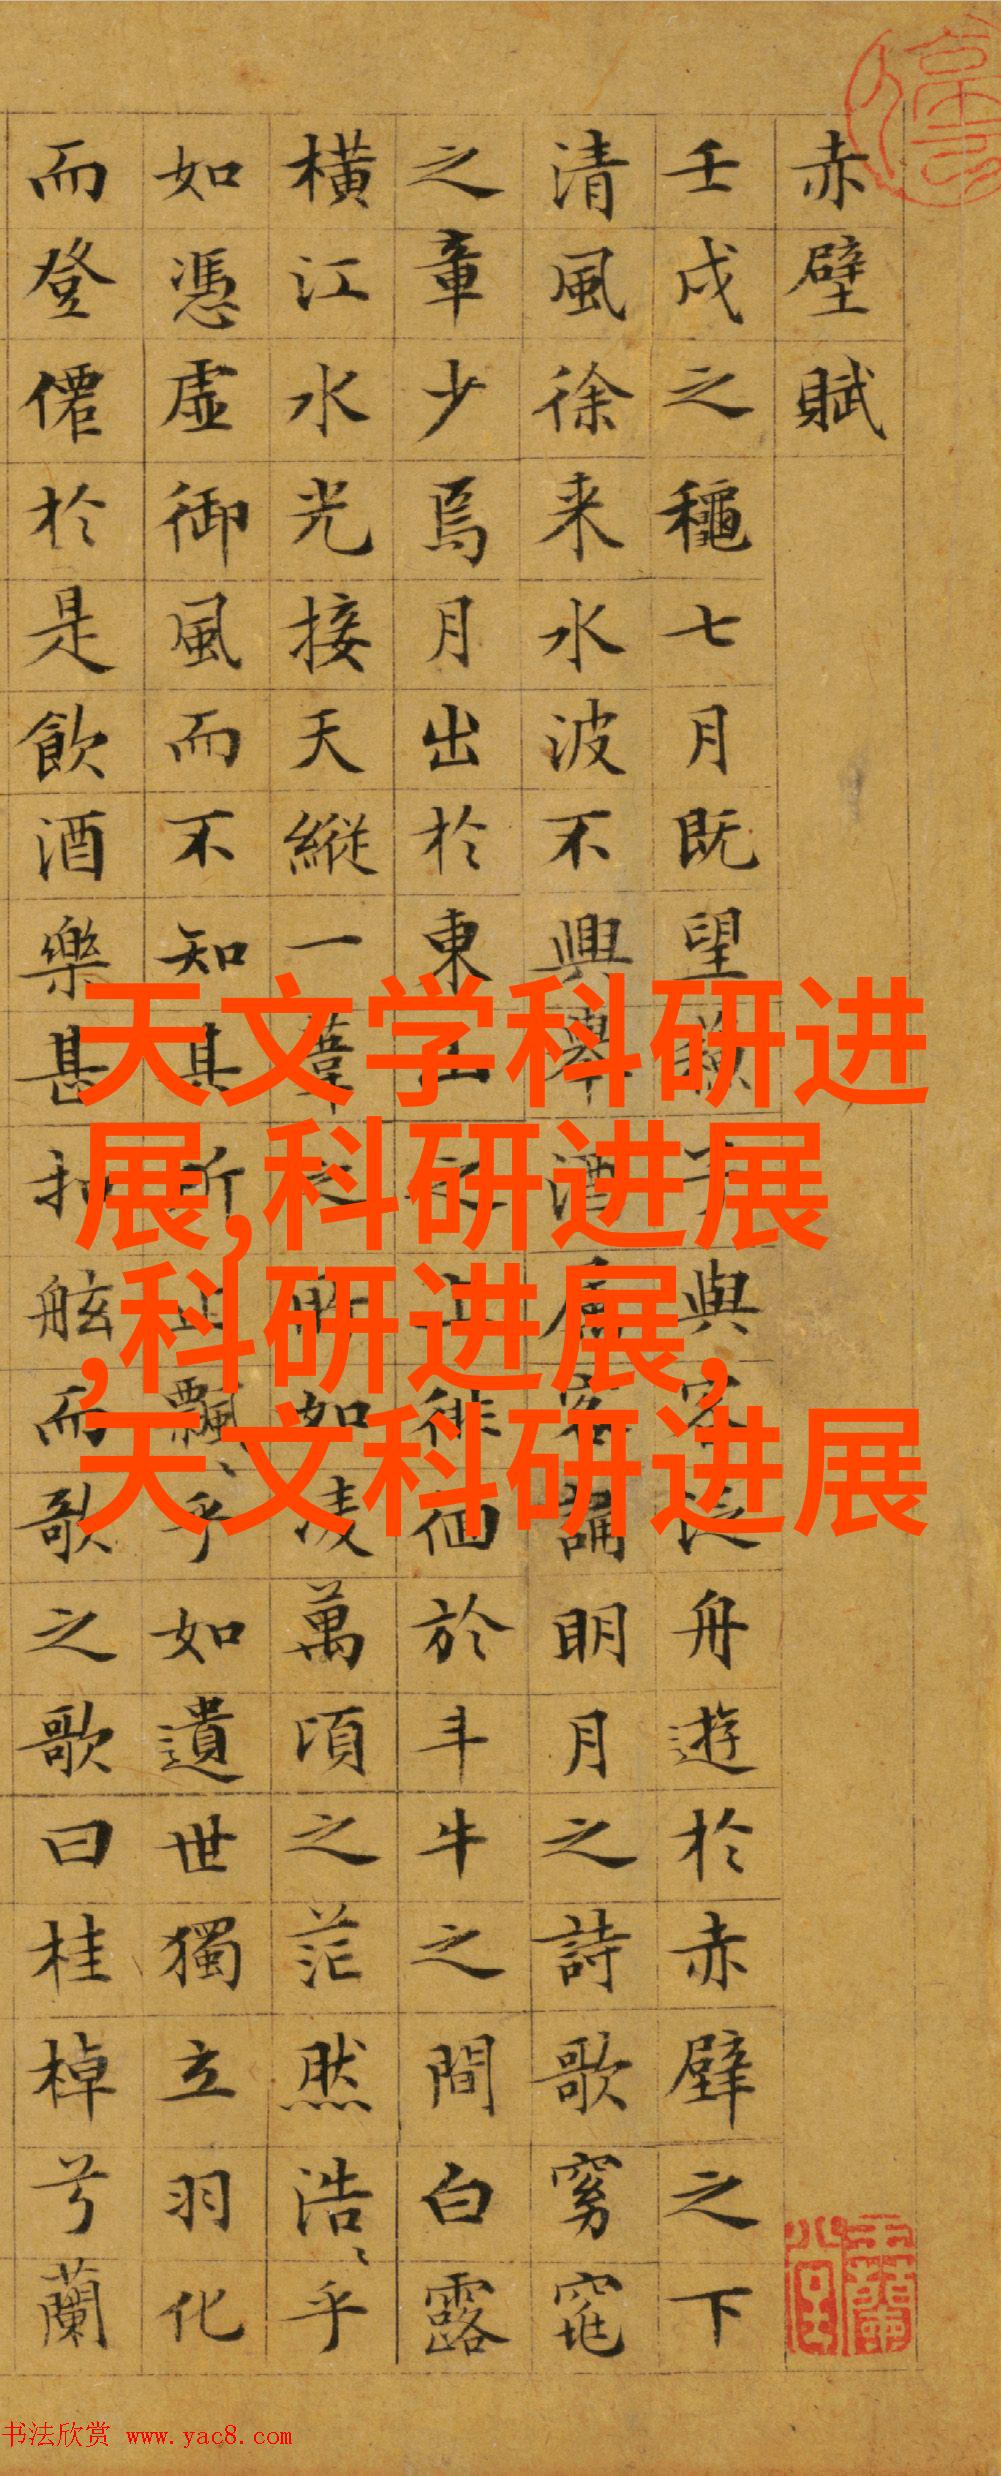 赤壁賦
壬戌之穐七月既望蘓子與客泛舟遊於赤壁之下
清風徐来水波不興舉酒屬客誦明月之詩歌窈窕
之章少焉月出於東山之上徘徊於斗牛之間白露
橫江水光接天縱一葦之所如凌萬頃之茫然浩〻乎
如憑虛御風而不知其所止飄〻乎如遺世獨立羽化
而登僊於是飲酒樂甚扣舷而歌之歌曰桂棹兮蘭
天文学科研进
展,科研进展
,科研进展,
天文科研进展
书法欣赏 www.yac8.com